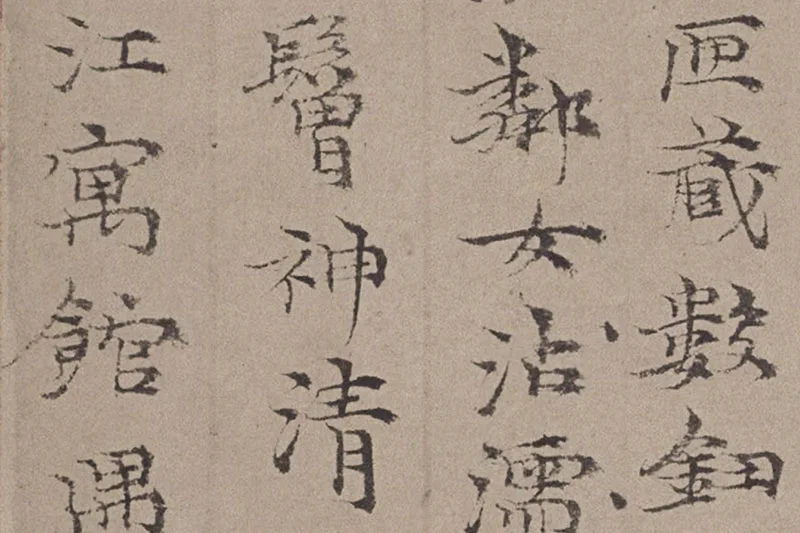 匣藏數鈕
鄰女沾濡
鬙神清
江寓館